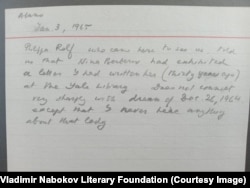 Jan. 3, 1965
Rolf who came here to see us told
us that Nina Berberov had exhibited
a letter I had written her (thirty years ago)
at the State Library. Does not connect
very sharply with dream of Dec. 26, 1964
except that I never hear anything
about that lady
Vladimir Nabokov Literary Foundation (Courtesy Image)